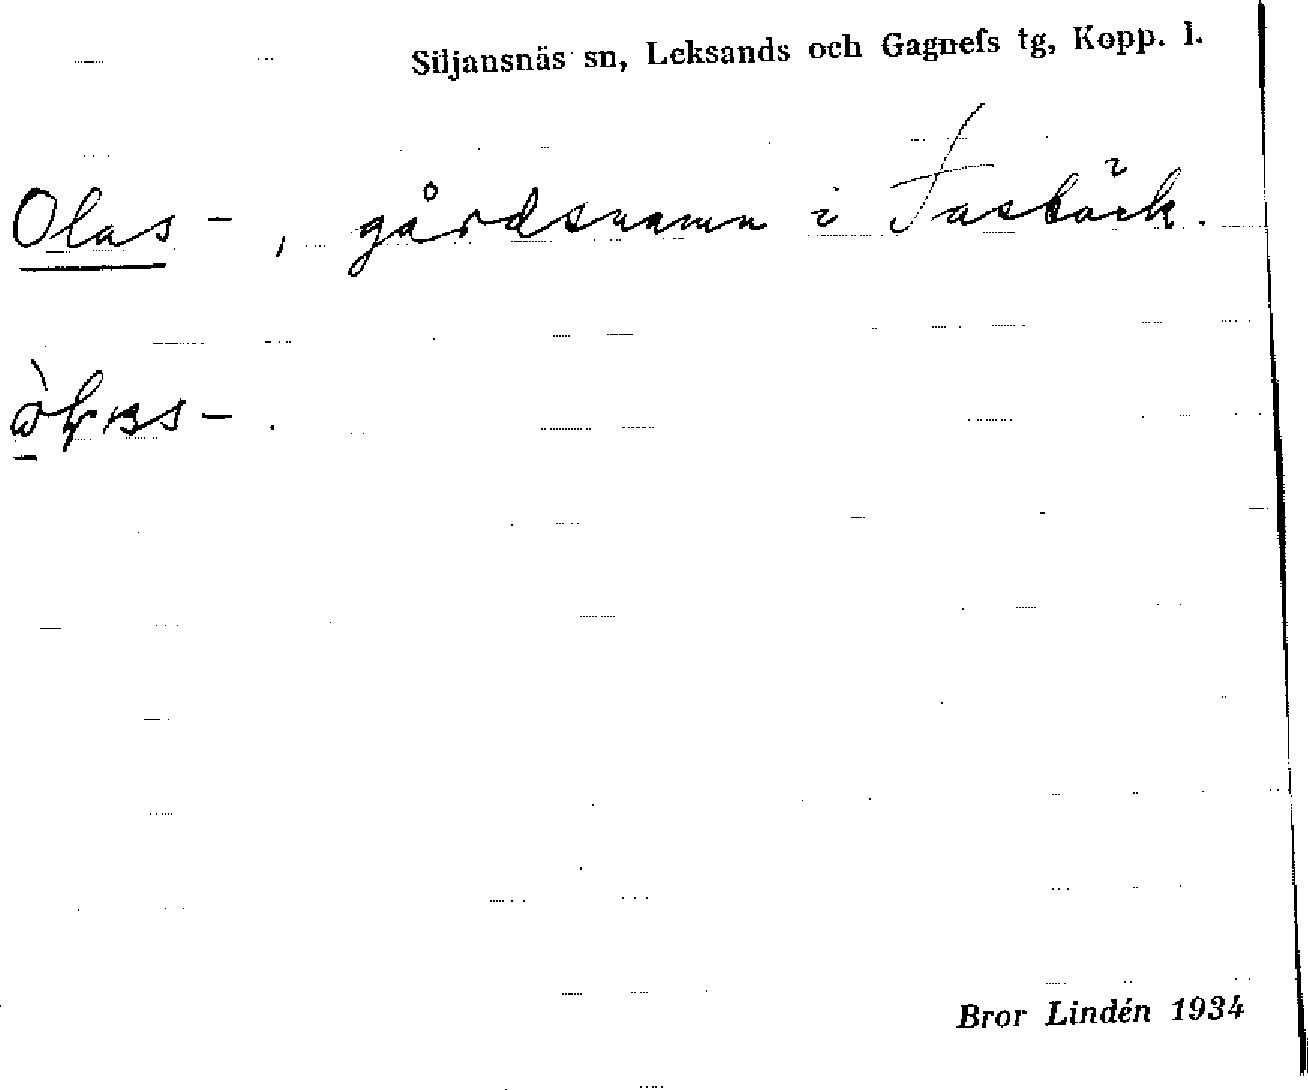 Siljansnäs sn, Leksands och Gagnefs tg, Kopp. l.
Olas-, gårdsnamn i Fasbäck.
Bror Lindén 1934